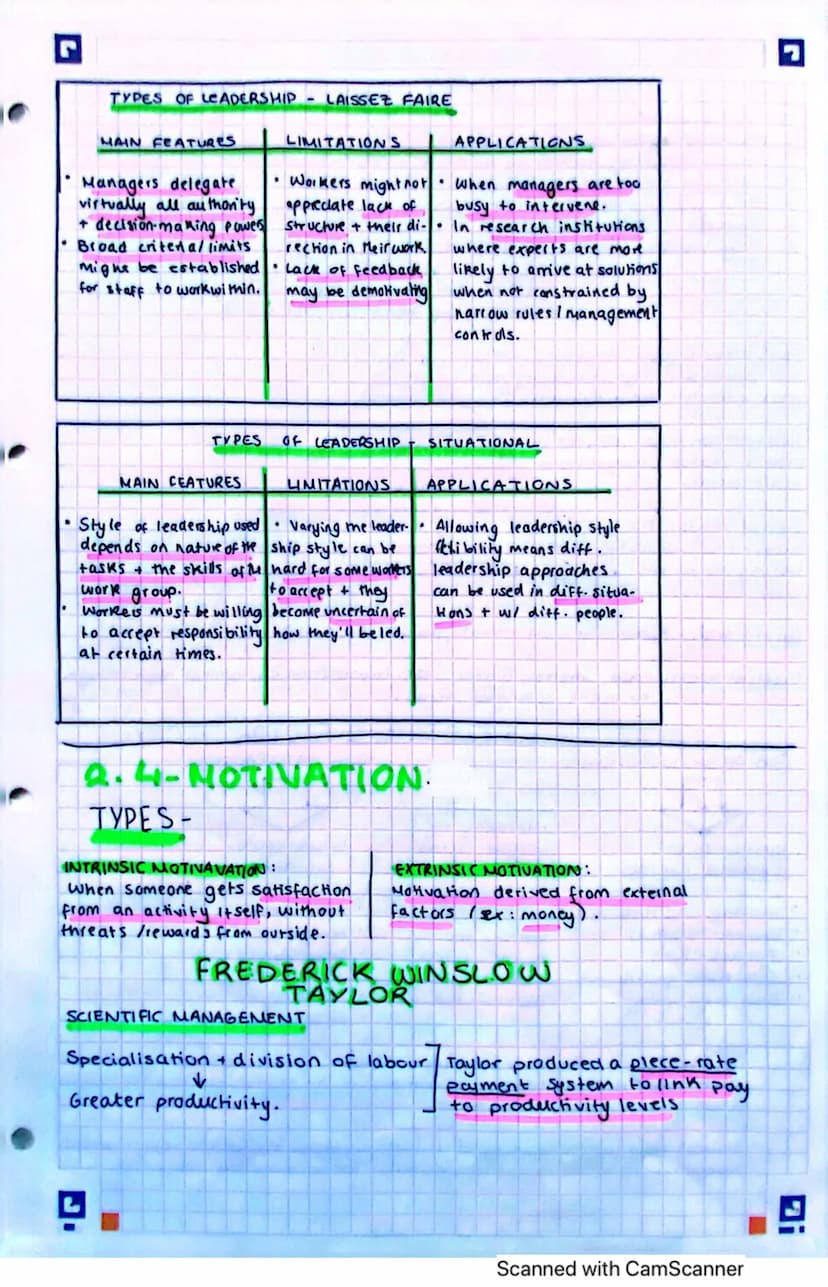 TYPES OF LEADERSHIP - LAISSEZ FAIRE
MAIN FEATURES
• Managers delegate
virtually all authority
+ decision-making powers
• Broad criteria/limits
might be established
for staff to work within.
LIMITATIONS
• Workers might not
appreciate lack of
structure + their di-
rection in their work
• Lack of feedback
may be demotivating
APPLICATIONS
• When managers are too
busy to intervene.
• In research institutions
where experts are more
likely to arrive at solutions
when not constrained by
narrow rules / management
controls.
TYPES OF LEADERSHIP - SITUATIONAL
MAIN FEATURES
• Style of leadership used
depends on nature of the
tasks + the skills of the
work group.
• Workers must be willing
to accept responsibility
at certain times.
LIMITATIONS
• Varying the leader-
ship style can be
hard for some workers
to accept + they
become uncertain of
how they'll be led.
APPLICATIONS
• Allowing leadership style
flexibility means diff.
leadership approaches
can be used in diff. situa-
tions + w/ diff. people.
2.4-MOTIVATION.
TYPES-
INTRINSIC MOTIVAVATION:
When someone gets satisfaction
from an activity itself, without
threats /rewards from outside.
EXTRINSIC MOTIVATION:
Motivation derived from external
factors (ex: money).
FREDERICK WINSLOW
TAYLOR
SCIENTIFIC MANAGEMENT
Specialisation + division of labour
↓
Greater productivity.
Taylor produced a piece-rate
payment system to link pay
to productivity levels
Scanned with CamScanner